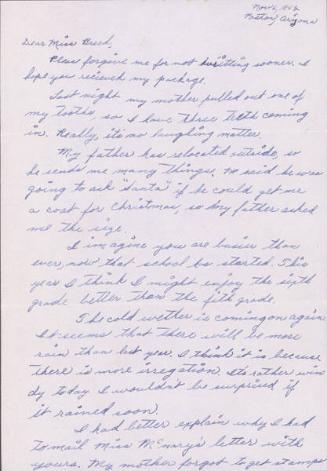 Nov 6, 1942
Poston, Arizona
Dear Miss Breed,
Please forgive me for not writting sooner. I
hope you recieved my package.
Last night my mother pulled out one of
my tooths, so I have three teeth coming
in. Really, its no laughing matter.
My father has relocated outside, so
he sends me many things. He said he was
going to ask "Santa" if he could get me
a coat for Christmas, so my father asked
me the size.
I imagine you are busier than
ever, now that school has started. This
year I think I might enjoy the sixth
grade better than the fifth grade.
The cold wether is coming on again
It seems that there will be more
rain than last year. I think it is becuse
there is more irregation. Its rather win
dy today I wouldn't be surprised if
it rained soon.
I had better explain why I had
to mail Miss McNary's letter with
yours. My mother forgot to get stamps